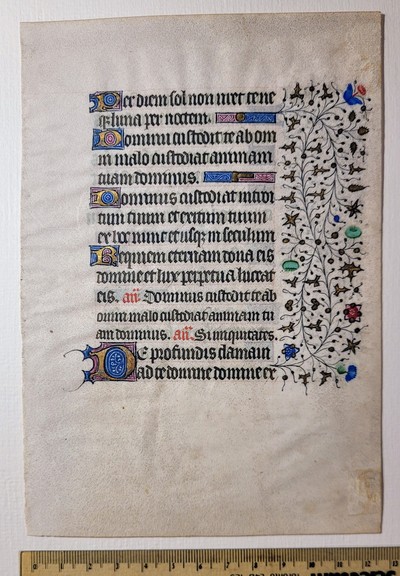 Per diem sol non uret te ne
qꝫ luna per noctem.
Dominus custodit te ab om
ni malo custodiat animam
tuam dominus.
Dominus custodiat introi
tum tuum et exitum tuum
ex hoc nunc et usqꝫ in seculum
Requiem eternam dona eis
domine et lux perpetua luceat
eis. añ Dominus custodit te ab
omni malo custodiat animam tu
am dominus. añ. Si iniquitates.
De profundis clamaui
ad te domine domine ex
0 1 2 3 4 5 6 7 8 9 10 11 12 13